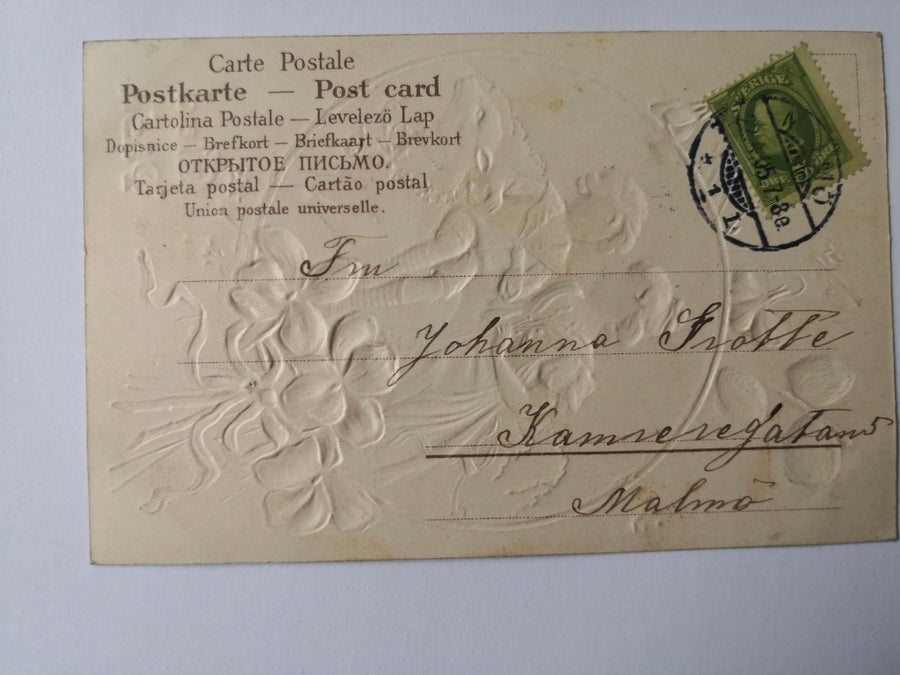 Carte Postale
Postkarte — Post card
Cartolina Postale — Levelező Lap
Dopisnice — Brefkort — Briefkaart — Brevkort
ОТКРЫТОЕ ПИСЬМО.
Tarjeta postal — Cartão postal
Union postale universelle.
SVERIGE
Johanna
Malmö